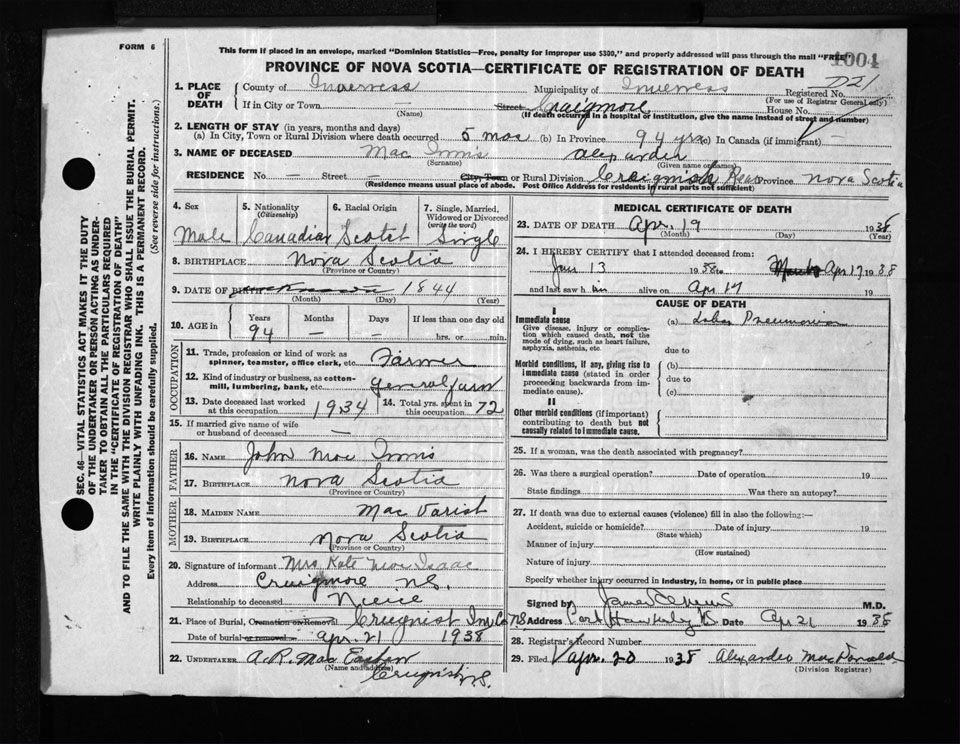 FORM 6
This form if placed in an envelope, marked "Dominion Statistics—Free, penalty for improper use $300," and properly addressed will pass through the mail "FREE"
1004
PROVINCE OF NOVA SCOTIA—CERTIFICATE OF REGISTRATION OF DEATH
1. PLACE OF DEATH County of Inverness Municipality of Inverness Registered No. 721
(For use of Registrar General only)
If in City or Town — (Name) Street Craigmore House No.
(If death occurred in a hospital or institution, give the name instead of street and number)
2. LENGTH OF STAY (in years, months and days)
(a) In City, Town or Rural Division where death occurred 5 mos (b) In Province 94 yrs (c) In Canada (if immigrant) —
3. NAME OF DECEASED Mac Innis Alexander
(Surname) (Given name or names)
RESIDENCE No. — Street — City, Town or Rural Division Craigmore Rear Province Nova Scotia
(Residence means usual place of abode. Post Office Address for residents in rural parts not sufficient)
4. Sex 5. Nationality (Citizenship) 6. Racial Origin 7. Single, Married, Widowed or Divorced (write the word)
Male Canadian Scotch Single
8. BIRTHPLACE Nova Scotia
(Province or Country)
9. DATE OF BIRTH unknown 1844
(Month) (Day) (Year)
10. AGE in Years Months Days If less than one day old
94 — — hrs. or min.
OCCUPATION
11. Trade, profession or kind of work as spinner, teamster, office clerk, etc. Farmer
12. Kind of industry or business, as cotton-mill, lumbering, bank, etc. General farm
13. Date deceased last worked at this occupation 1934 14. Total yrs. spent in this occupation 72
15. If married give name of wife or husband of deceased —
FATHER
16. NAME John Mac Innis
17. BIRTHPLACE Nova Scotia
(Province or Country)
MOTHER
18. MAIDEN NAME Mac Varish
19. BIRTHPLACE Nova Scotia
(Province or Country)
20. Signature of informant Mrs Kate Mac Isaac
Address Craigmore N.S.
Relationship to deceased Niece
21. Place of Burial, Cremation or Removal Creignish Inv Co N.S.
Date of burial or removal Apr. 21 1938
22. UNDERTAKER A. R. Mac Eachen
(Name and address)
Creignish N.S.
MEDICAL CERTIFICATE OF DEATH
23. DATE OF DEATH Apr. 19 1938
(Month) (Day) (Year)
24. I HEREBY CERTIFY that I attended deceased from:
Jan 13 1938 to Apr 17 1938
and last saw h im alive on Apr 17 19
CAUSE OF DEATH
I
Immediate cause (a) Lobar Pneumonia
Give disease, injury or complication which caused death, not the mode of dying, such as heart failure, asphyxia, asthenia, etc.
due to
Morbid conditions, if any, giving rise to immediate cause (stated in order proceeding backwards from immediate cause). (b)
due to
(c)
II
Other morbid conditions (if important) contributing to death but not causally related to immediate cause.
25. If a woman, was the death associated with pregnancy?
26. Was there a surgical operation? Date of operation 19
State findings Was there an autopsy?
27. If death was due to external causes (violence) fill in also the following:—
Accident, suicide or homicide? Date of injury 19
(State which)
Manner of injury
(How sustained)
Nature of injury
Specify whether injury occurred in industry, in home, or in public place
Signed by M.D.
Address Port Hawkesbury Date Apr 21 1938
28. Registrar's Record Number
29. Filed Apr. 20 1938 Alexander MacDonald
(Division Registrar)
SEC. 46—VITAL STATISTICS ACT MAKES IT THE DUTY
OF THE UNDERTAKER OR PERSON ACTING AS UNDER-
TAKER TO OBTAIN ALL THE PARTICULARS REQUIRED
IN THE "CERTIFICATE OF REGISTRATION OF DEATH"
AND TO FILE THE SAME WITH THE DIVISION REGISTRAR WHO SHALL ISSUE THE BURIAL PERMIT.
WRITE PLAINLY WITH UNFADING INK. THIS IS A PERMANENT RECORD.
Every item of information should be carefully supplied. (See reverse side for instructions.)